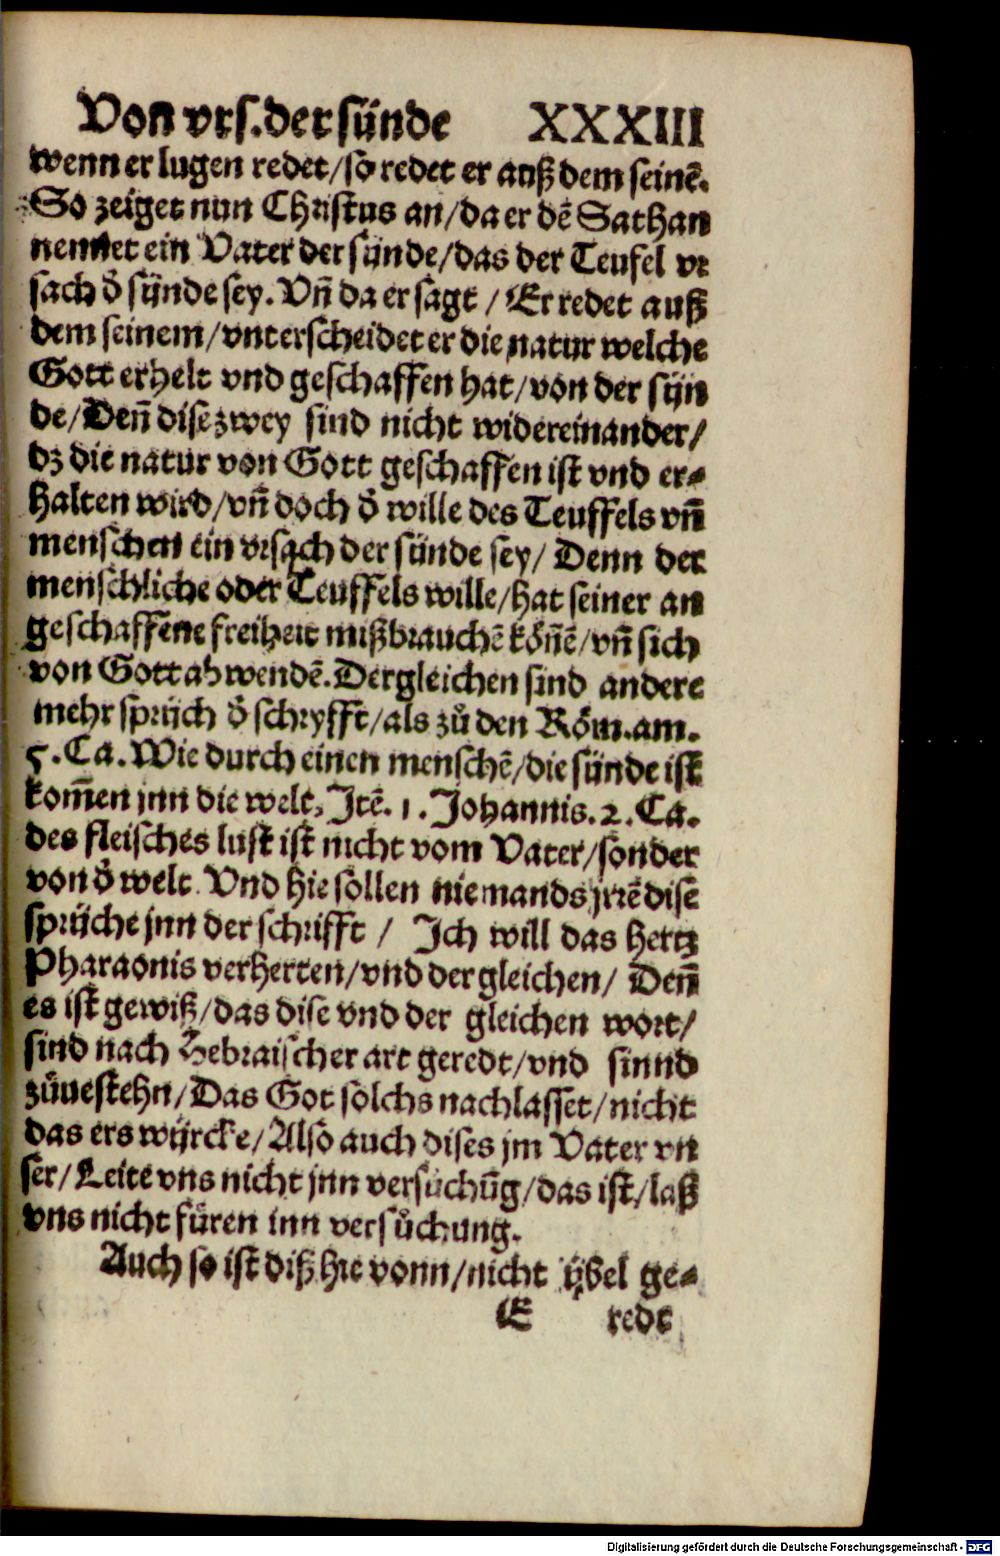 Von vrs. der sünde XXXIII
wenn er lugen redet/so redet er auß dem seinē.
So zeiget nun Christus an/da er dē Sathan
nennet ein Vater der sünde/das der Teufel vr
sach d̄ sünde sey. Vn̄ da er sagt / Er redet auß
dem seinem/vnterscheidet er die natur welche
Gott erhelt vnd geschaffen hat/von der sün
de/Den̄ dise zwey sind nicht widereinander/
dz die natur von Gott geschaffen ist vnd er-
halten wird/vn̄ doch d̄ wille des Teuffels vn̄
menschen ein vrsach der sünde sey/ Denn der
menschliche oder Teuffels wille/hat seiner an
geschaffene freiheit mißbrauchē kön̄ē/vn̄ sich
von Gott abwendē. Dergleichen sind andere
mehr sprüch d̄ schryfft/als zů den Röm.am.
5.Ca. Wie durch einen menschē/die sünde ist
kom̄en jnn die welt, Itē. 1. Johannis. 2. Ca.
des fleisches lust ist nicht vom Vater/sonder
von d̄ welt. Vnd hie sollen niemands jrrē dise
sprüche jnn der schrifft / Ich will das hertz
Pharaonis verherten/vnd der gleichen/ Den̄
es ist gewiß/das dise vnd der gleichen wort/
sind nach Hebraischer art geredt/vnd sinnd
zůuestehn/Das Got solchs nachlasset/nicht
das ers würcke/Also auch dises jm Vater vn
ser/Leite vns nicht jnn versůchūg/das ist/laß
vns nicht füren inn versůchung.
Auch so ist diß hie vonn/nicht übel ge-
E redt
Digitalisierung gefördert durch die Deutsche Forschungsgemeinschaft - DFG